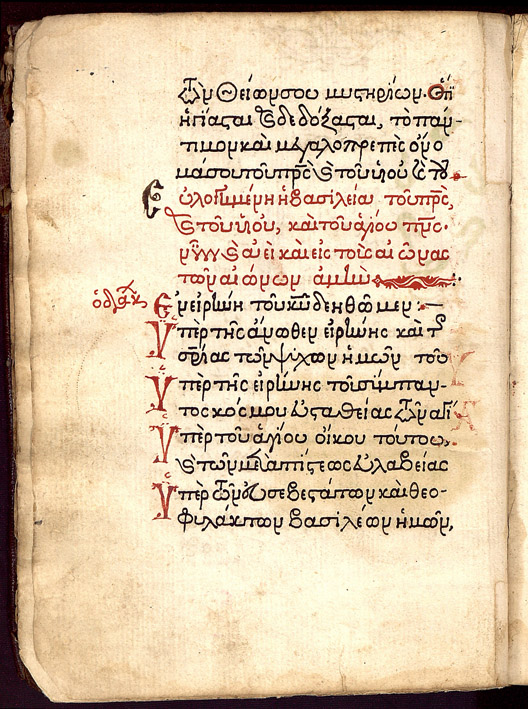 τῶν θείων σου μυστηρίων. Ὅτι
ἡγίασται καὶ δεδόξασται, τὸ πάν-
τιμον καὶ μεγαλοπρεπὲς ὄνο
μά σου τοῦ πρς καὶ τοῦ υἱοῦ καὶ τοῦ
Εὐλογημένη ἡ βασιλεία τοῦ πρς,
καὶ τοῦ υἱοῦ, καὶ τοῦ ἁγίου πνς.
νῦν καὶ ἀεὶ καὶ εἰς τοὺς αἰῶνας
τῶν αἰώνων ἀμήν
ὁ διακ Ἐν εἰρήνῃ τοῦ κυ δεηθῶμεν
Ὑπὲρ τῆς ἄνωθεν εἰρήνης καὶ τῆς
σριας τῶν ψυχῶν ἡμῶν τοῦ
Ὑπὲρ τῆς εἰρήνης τοῦ σύμπαν-
τος κόσμου εὐσταθείας τῶν ἁγί
Ὑπὲρ τοῦ ἁγίου οἴκου τούτου,
καὶ τῶν μετὰ πίστεως εὐλαβείας
Ὑπὲρ τῶν εὐσεβεστάτων καὶ θεο-
φυλάκτων βασιλέων ἡμῶν,